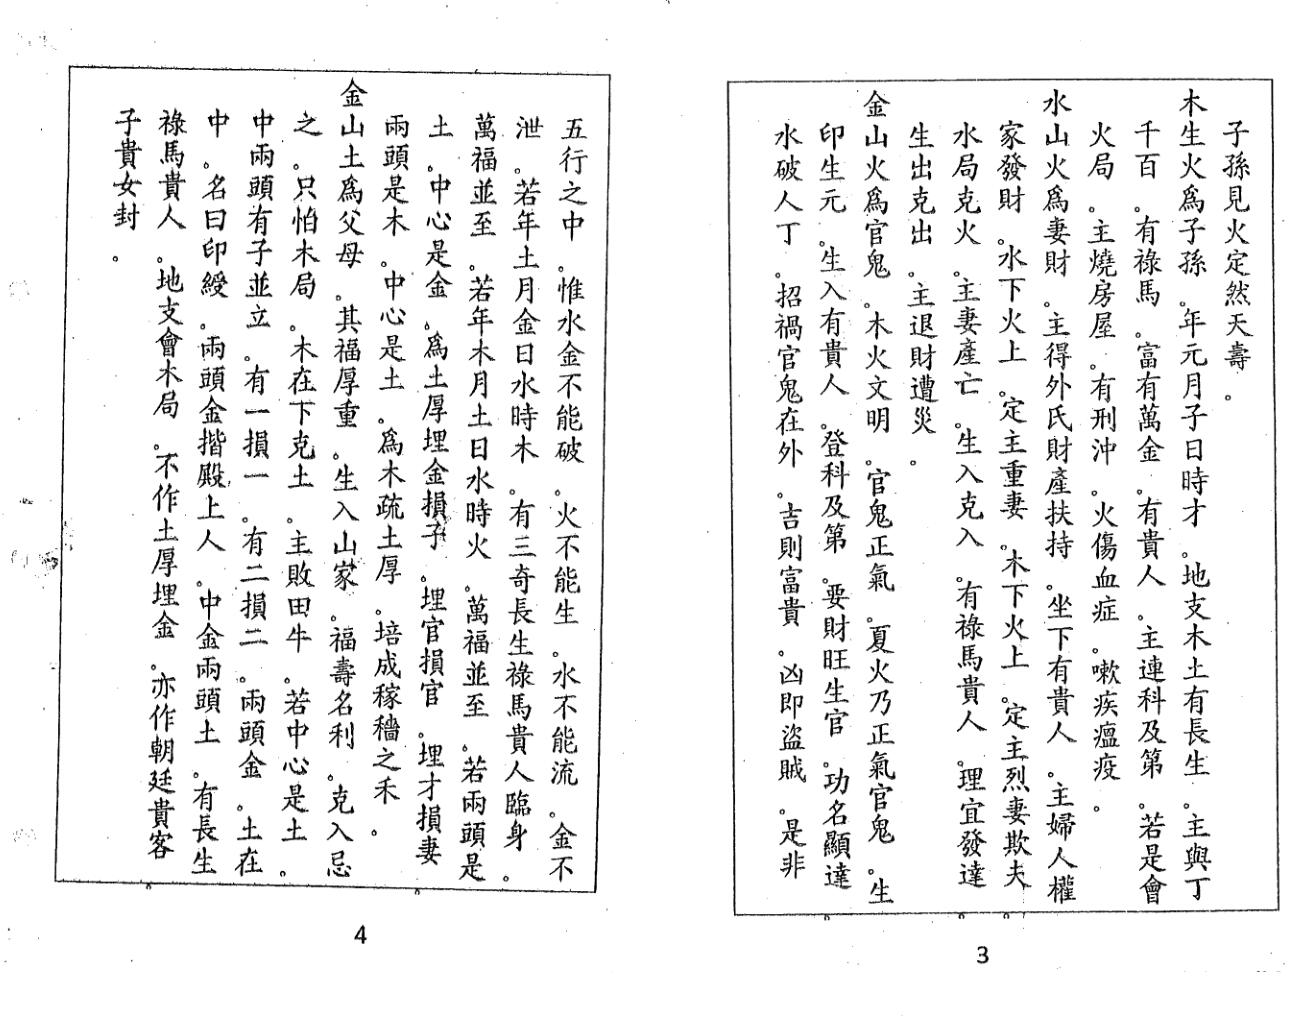 子孫見火定然夭壽。
木生火爲子孫。年元月子日時才。地支木土有長生。主與丁
千百。有祿馬。富有萬金。有貴人。主連科及第。若是會
火局。主燒房屋。有刑沖。火傷血症。嗽疾瘟疫。
水山火爲妻財。主得外氏財產扶持。坐下有貴人。主婦人權
家發財。水下火上。定主重妻。木下火上。定主烈妻欺夫。
水局克火。主妻產亡。生入克入。有祿馬貴人。理宜發達。
生出克出。主退財遭災。
金山火爲官鬼。木火文明。官鬼正氣。夏火乃正氣官鬼。生
印生元。生入有貴人。登科及第。要財旺生官。功名顯達。
水破人丁。招禍官鬼在外。吉則富貴。凶即盜賊。是非
3
五行之中。惟水金不能破。火不能生。水不能流。金不
泄。若年土月金日水時木。有三奇長生祿馬貴人臨身。
萬福並至。若年木月土日水時火。萬福並至。若兩頭是
土。中心是金。爲土厚埋金損子。埋官損官。埋才損妻。
兩頭是木。中心是土。爲木疏土厚。培成稼穡之禾。
金山土爲父母。其福厚重。生入山家。福壽名利。克入忌
之。只怕木局。木在下克土。主敗田牛。若中心是土。
中兩頭有子並立。有一損一。有二損二。兩頭金。土在
中。名曰印綬。兩頭金揩殿上人。中金兩頭土。有長生
祿馬貴人。地支會木局。不作土厚埋金。亦作朝廷貴客。
子貴女封。
4